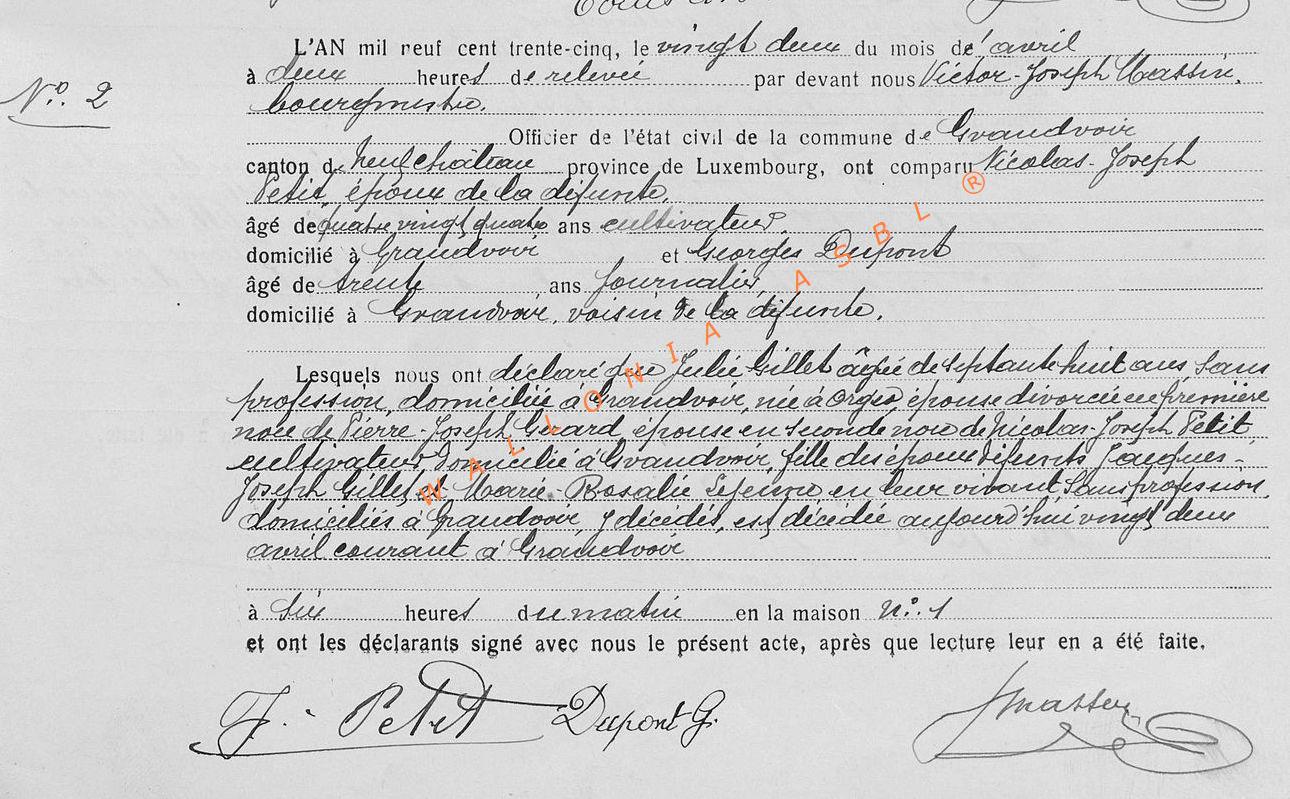 L'AN mil neuf cent trente-cinq, le vingt deux du mois d'avril
à deux heures de relevée par devant nous Victor-Joseph Massin,
N° 2
bourgmestre.
Officier de l'état civil de la commune de Grandvoir
canton de Neufchâteau province de Luxembourg, ont comparu Nicolas-Joseph
Petit, époux de la défunte,
âgé de quatre vingt quatre ans cultivateur,
domicilié à Grandvoir et Georges Dupont
âgé de trente ans Journalier,
domicilié à Grandvoir, voisin de la défunte.
Lesquels nous ont déclaré que Julie Gillet âgée de septante huit ans sans
profession, domiciliée à Grandvoir, née à Orgeo épouse divorcée en première
noce de Pierre-Joseph Gérard, épouse en seconde noce de Nicolas-Joseph Petit,
cultivateur, domicilié à Grandvoir, fille des époux défunts Jacques-
Joseph Gillet et Marie-Rosalie Lejeune en leur vivant sans profession,
domiciliés à Grandvoir, y décédés, est décédée aujourd'hui vingt deux
avril courant à Grandvoir
à six heures du matin en la maison n° 1
et ont les déclarants signé avec nous le présent acte, après que lecture leur en a été faite.
J. Petit Dupont G. Massin
WALLONIA ASBL ®